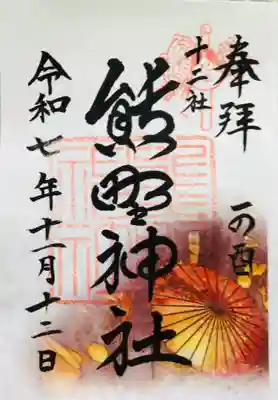 奉拝
十二社
一の酉
熊野神社
令和七年十一月十二日